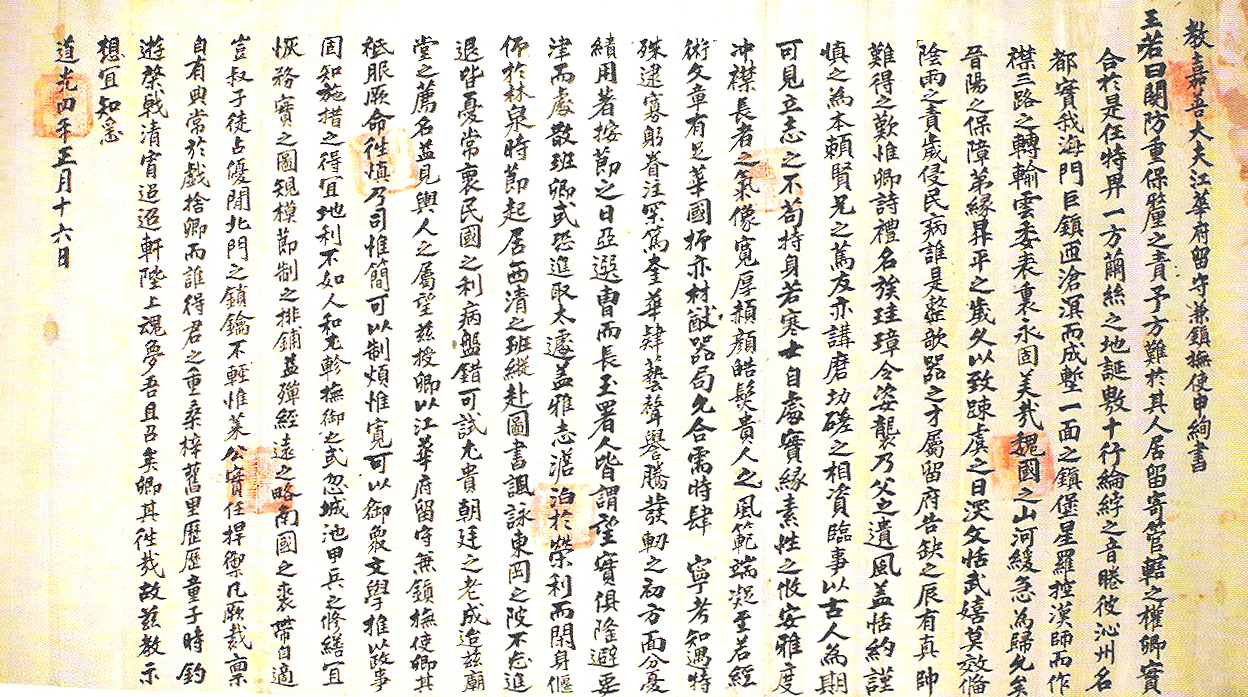 教嘉善大夫江華府留守兼鎭撫使申絢書
王若曰關防重保釐之責予方難於其人居留寄管轄之權卿實
合於是任特畀一方繭絲之地誕敷十行綸綍之音睠彼沁州名
都實我海門巨鎭西滄溟而成塹一面之鎭堡星羅控漢師而作
襟三路之轉輸雲委表裏永固美哉魏國之山河緩急為歸允矣
晉陽之保障第緣昇平之歲久以致踈虞之日深文恬武嬉莫效備
陰雨之責歲侵民病誰是整欹器之才屬留府告缺之辰有真帥
難得之歎惟卿詩禮名族珪璋令姿襲乃父之遺風盖恬約謹
慎之為本賴賢兄之篤友亦講磨切磋之相資臨事以古人為期
可見立志之不苟持身若寒士自處實緣素性之攸安雅度
冲襟長者之氣像寬厚頳顔皓髮貴人之風範端凝至若經
術文章有足華國抑亦材猷器局允合需時肆 寧考知遇特
殊逮寡躬眷注冞篤奎華肄藝聲譽騰發軔之初方面分憂
績用著按節之日亞選曺而長玉署人皆謂望實俱隆避要
津而處散班卿或恐進取太遽益雅志澹泊於榮利而閑身偃
仰於林泉時節起居西清之班縱赴圖書諷詠東岡之陂不忘進
退皆憂常衷民國之利病盤錯可試尤貴朝廷之老成迨玆廟
堂之薦名益見輿人之屬望玆授卿以江華府留守兼鎭撫使卿其
祗服厥命往愼乃司惟簡可以制煩惟寬可以御衆文學推以政事
固知施措之得宜地利不如人和尤軫撫御之或忽城池甲兵之修繕宜
恢務實之圖規模節制之排鋪益殫經遠之略南國之裘帶自適
豈叔子徒占優閒北門之鎖鑰不輕惟萊公實任捍禦凡厥裁稟
自有典常於戲捨卿而誰得君之重桑梓舊里歷歷童子時釣
遊棨戟清宵迢迢軒陛上魂夢吾且召矣卿其往哉故玆敎示
想宜知悉
道光四年正月十六日